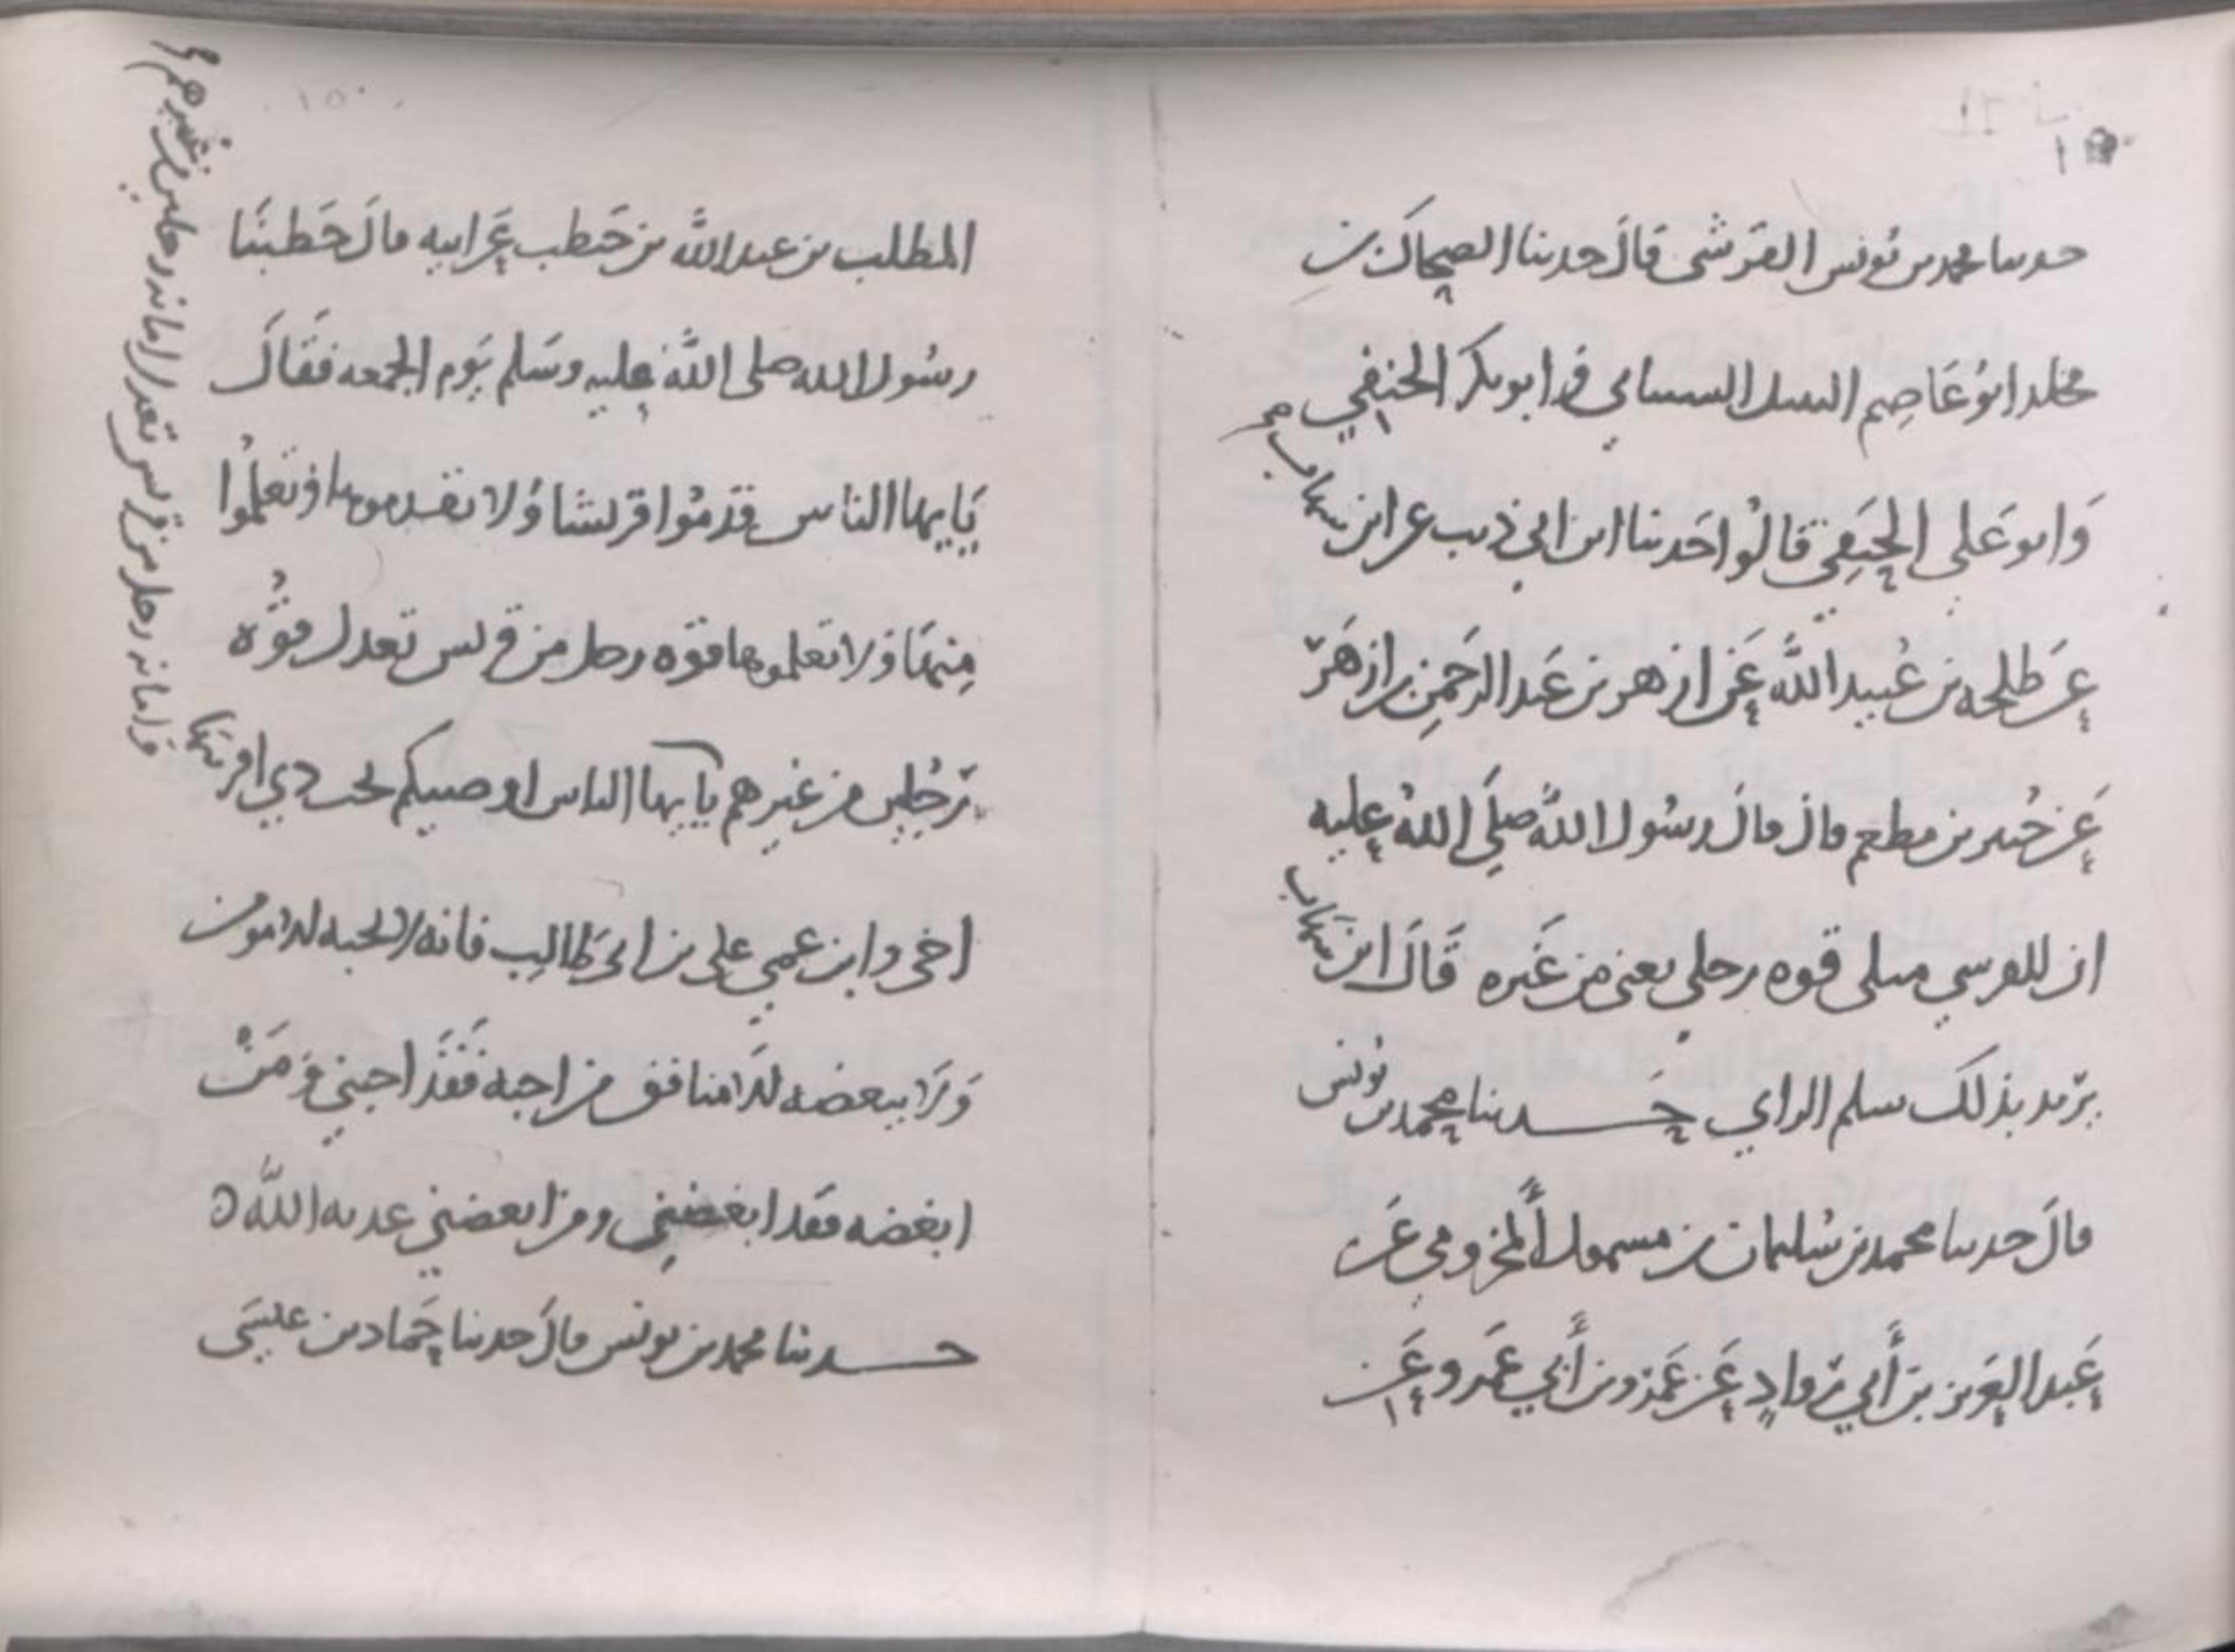 حدثنا محمد بن يونس القرشي قال حدثنا الضحاك بن
مخلد ابو عاصم النبيل الشيباني وابو بكر الحنفي
وابو علي الحنفي قالوا حدثنا ابن ابي ذيب عن ابن شهاب
عن طلحه بن عبيد الله عن ازهر بن عبد الرحمن بن ازهر
عن جبير بن مطعم قال قال رسول الله صلى الله عليه
ان للقرشي مثلي قوه رجلين يعني من غيره قال ابن شهاب
يريد بذلك نبل الراي حدثنا محمد بن يونس
قال حدثنا محمد بن سليمان بن مسمول المخزومي عن
عبد العزيز بن أبي رواد عن عمرو بن أبي عمرو عن
المطلب بن عبد الله بن حنطب عن ابيه قال خطبنا
رسول الله صلى الله عليه وسلم يوم الجمعه فقال
يايها الناس قدموا قريشا ولا تقدموها وتعلموا
منها ولا تعلموها قوه رجل من قريش تعدل قوه
رجلين من غيرهم يايها الناس اوصيكم بحب ذي اقربيها
اخي وابن عمي علي بن ابي طالب فانه لا يحبه الا مومن
ولا يبغضه الا منافق من احبه فقد احبني ومن
ابغضه فقد ابغضني ومن ابغضني عذبه الله
حدثنا محمد بن يونس قال حدثنا حماد بن عيسى
وامانه رجل من قريش تعدل امانه رجلين من غيرهم